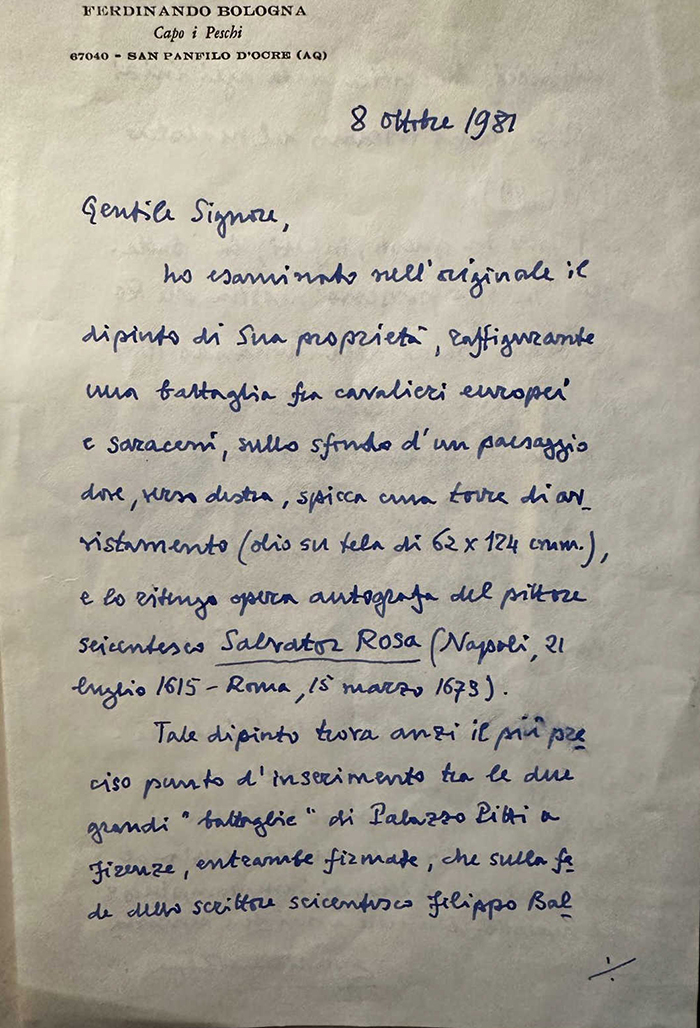 FERDINANDO BOLOGNA
Capo i Peschi
67040 - SAN PANFILO D'OCRE (AQ)
8 ottobre 1981
Gentile Signore,
ho esaminato nell'originale il
dipinto di Sua proprietà, raffigurante
una battaglia fra cavalieri europei
e saraceni, sullo sfondo d'un paesaggio
dove, verso destra, spicca una torre di av_
vistamento (olio su tela di 62 x 124 cmm.),
e lo ritengo opera autografa del pittore
seicentesco Salvator Rosa (Napoli, 21
luglio 1615 - Roma, 15 marzo 1673).
Tale dipinto trova anzi il più pre
ciso punto d'inserimento tra le due
grandi "battaglie" di Palazzo Pitti a
Firenze, entrambe firmate, che sulla fe
de dello scrittore seicentesco Filippo Bal
./.